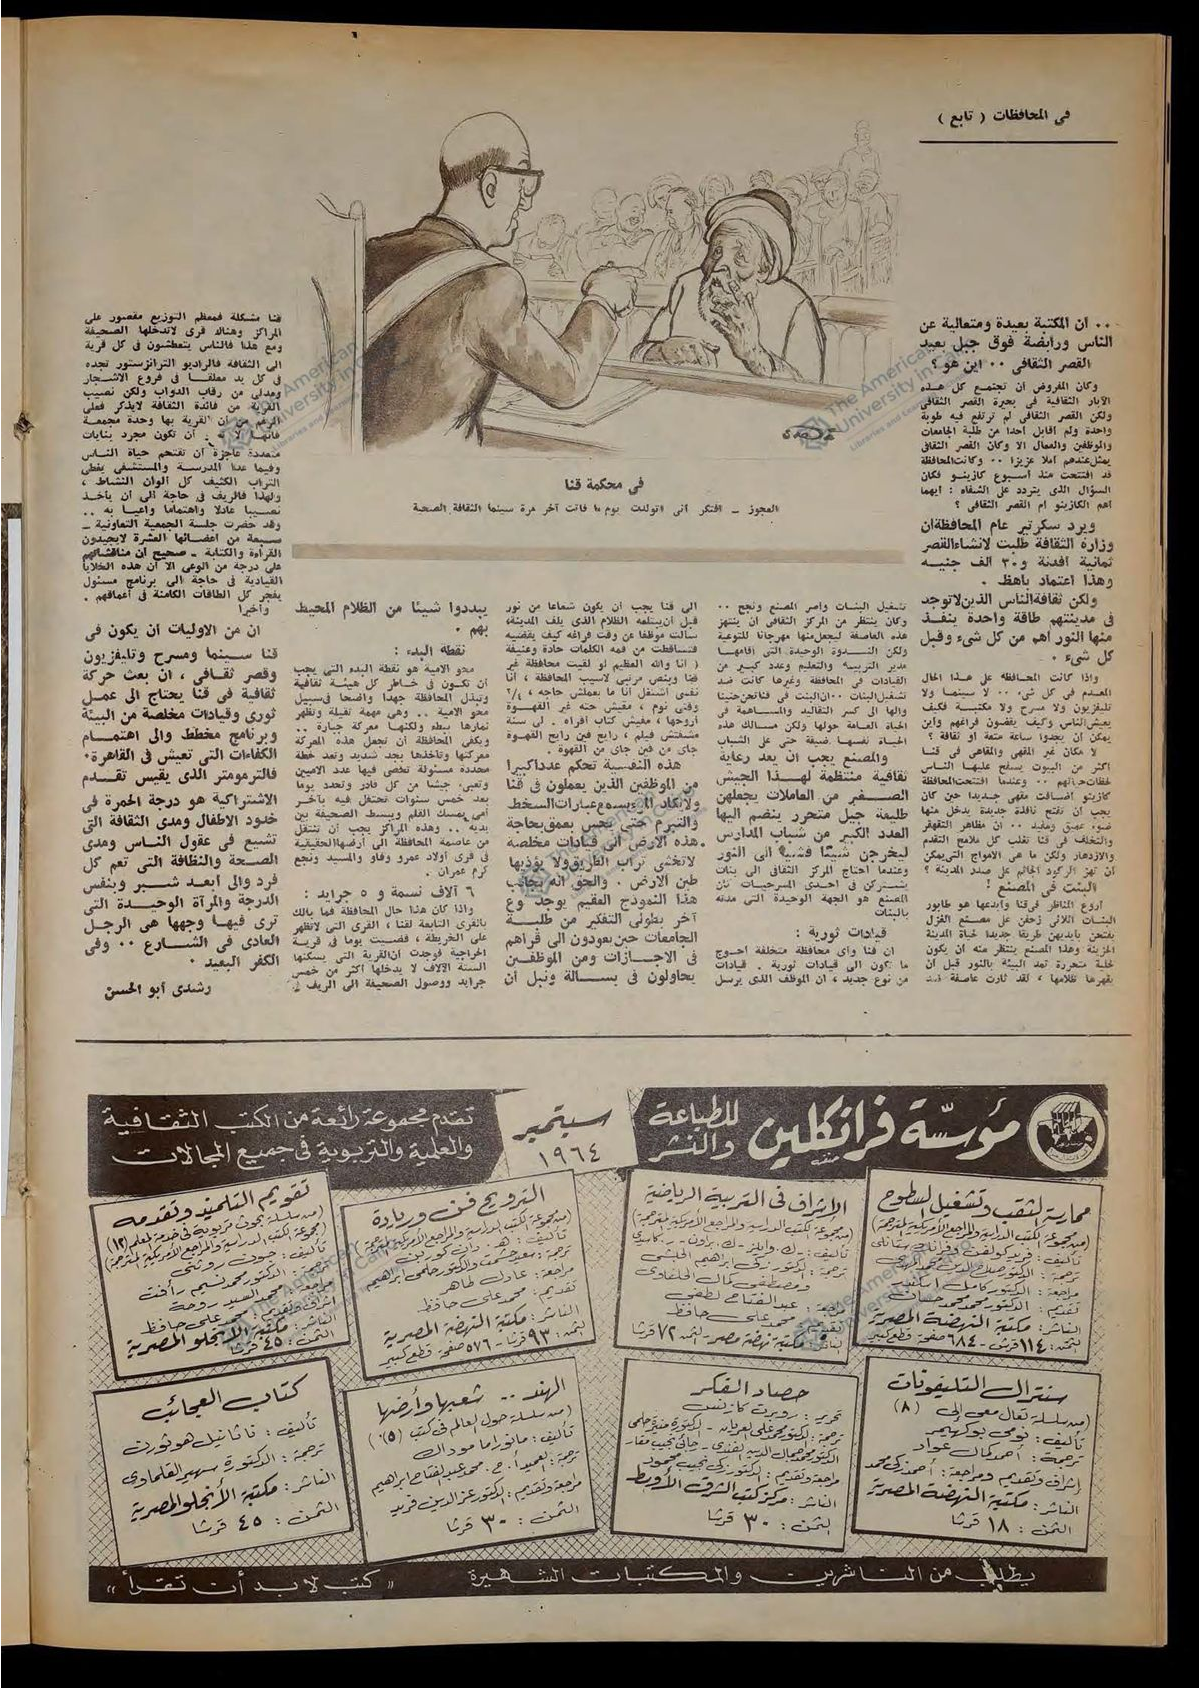 فى المحافظات ( تابع )
فى محكمة قنا
العجوز ــ افتكر انى اتولدت يوم ما فاتت آخر مرة سينما الثقافة الصحية
٠٠ ان المكتبة بعيدة ومتعالية عن
الناس ورابضة فوق جبل بعيد
القصر الثقافى ٠٠ اين هو ؟
وكان المفروض ان تجتمع كل هذه
الآبار الثقافية فى بحيرة القصر الثقافى
ولكن القصر الثقافى لم ترتفع فيه طوبة
واحدة ولم اقابل أحدا من طلبة الجامعات
والموظفين والعمال الا وكان القصر الثقافى
يمثل عندهم أملا عزيزا ٠٠ وكانت المحافظة
قد افتتحت منذ أسبوع كازينو فكان
السؤال الذى يتردد على الشفاه : أيهما
أهم الكازينو أم القصر الثقافى ؟
ويرد سكرتير عام المحافظة ان
وزارة الثقافة طلبت لانشاء القصر
ثمانية أفدنة و٣٠ الف جنيه
وهذا اعتماد باهظ ٠
ولكن ثقافة الناس الذين لا توجد
فى مدينتهم طاقة واحدة ينفذ
منها النور أهم من كل شىء وقبل
كل شىء ٠
واذا كانت المحافظة على هذا الحال
المعدم فى كل شىء ٠٠ لا سينما ولا
تليفزيون ولا مسرح ولا مكتبة فكيف
يعيش الناس وكيف يقضون فراغهم وأين
يمكن أن يجدوا ساعة متعة أو ثقافة ؟
لا مكان غير المقهى والمقاهى فى قنا
أكثر من البيوت يسفح عليها الناس
لحظات حياتهم ٠٠ وعندما افتتحت المحافظة
كازينو أضافت مقهى جديدا حين كان
يجب أن تفتح نافذة جديدة يدخل منها
ضوء عميق ومفيد ٠٠ ان مظاهر التقهقر
والتخلف فى قنا تغلب كل ملامح التقدم
والازدهار ولكن ما هى الأمواج التى يمكن
أن تهز الركود الجاثم على صدر المدينة ؟
البنت فى المصنع !
أروع المناظر فى قنا وأبدعها هو طابور
البنات اللائى زحفن على مصنع الغزل
يفتحن بأيديهن طريقا جديدا لحياة المدينة
الحزينة وهذا المصنع ينتظر منه أن يكون
خلية متحررة تمد البيئة بالنور قبل أن
يقهرها ظلامها ، لقد ثارت عاصفة ضد
تشغيل البنات وأصر المصنع ونجح ٠٠
وكان ينتظر من المركز الثقافى أن ينتهز
هذه العاصفة ليجعل منها مهرجانا للتوعية
ولكن الندوة الوحيدة التى أقامها
مدير التربية والتعليم وعدد كبير من
القيادات فى المحافظة وغيرها كانت ضد
تشغيل البنات ٠٠
وانها الى كسر التقاليد والمساهمة فى
الحياة العامة حولها ولكن مسالك هذه
الحياة نفسها ضيقة حتى على الشباب
والمصنع يجب ان يعد رعاية
ثقافية منتظمة لهذا الجيش
الصغير من العاملات يجعلهن
طليعة جيل متحرر ينضم اليها
العدد الكبير من شباب المدارس
ليخرجن شيئا فشيئا الى النور
وعندما احتاج المركز الثقافى الى بنات
يشتركن فى احدى المسرحيات كان
المصنع هو الجهة الوحيدة التى مدته
بالبنات
قيادات ثورية :
ان قنا وأى محافظة متخلفة أحوج
ما تكون الى قيادات ثورية ٠ قيادات
من نوع جديد ، ان الموظف الذى يرسل
الى قنا يجب أن يكون شعاعا من نور
قبل أن يبتلعه الظلام الذى يلف المدينة ،
سألت موظفا عن وقت فراغه كيف يقضيه
فتساقطت من فمه الكلمات حادة وعنيفة
( أنا والله العظيم لو لقيت محافظة غير
قنا وينقص مرتبى لاسيب المحافظة ، أنا
نفسى أشتغل أنا ما بعملش حاجه ،
وقتى نوم ، مفيش حته غير القهوة
أروحها ، مفيش كتاب أقراه ، لى سنة
مشفتش فيلم ، رايح فين رايح القهوة
جاى من فين جاى من القهوة ٠
هذه النفسية تحكم عددا كبيرا
من الموظفين الذين يعملون فى قنا
ولا يكاد المرء يسمع عبارات السخط
والتبرم حتى يحس بعمق بحاجة
هذه الأرض الى قيادات مخلصة
لا تخشى تراب الطريق ولا يؤذيها
طين الأرض ٠ والحق انه بجانب
هذا النموذج العقيم يوجد نوع
آخر بطولى التفكير من طلبة
الجامعات حين يعودون الى قراهم
فى الاجازات ومن الموظفين
يحاولون فى بسالة ونبل أن
يبددوا شيئا من الظلام المحيط
بهم ٠
نقطة البدء :
محو الامية هو نقطة البدء التى يجب
أن تكون فى خاطر كل هيئة ثقافية
وتبذل المحافظة جهدا واضحا فى سبيل
محو الامية ٠٠ وهى مهمة ثقيلة وتظهر
ثمارها ببطء ولكنها معركة جبارة ٠٠
ويكفى المحافظة أن تجعل هذه المعركة
معركتها وتأخذها بجد شديد وتعد خطة
محددة مسئولة تحصى فيها عدد الاميين
وتعبىء جيشا من كل قادر وتحدد يوما
بعد خمس سنوات تحتفل فيه بآخر
أمى يمسك القلم ويبسط الصحيفة بين
يديه ٠٠ وهذه المراكز يجب أن تنتقل
من عاصمة المحافظة الى أرضها الحقيقية
فى قرى أولاد عمرو وقاو والمسيد ونجع
كرم عمران ٠
٦ آلاف نسمة و ٥ جرايد :
واذا كان هذا حال المحافظة فما بالك
بالقرى التابعة لقنا ، القرى التى لا تظهر
على الخريطة ، قضيت يوما فى قرية
الحراجية فوجدت أن القرية التى يسكنها
الستة آلاف لا يدخلها أكثر من خمس
جرايد ووصول الصحيفة الى الريف فى
قنا مشكلة فمعظم التوزيع مقصور على
المراكز وهناك قرى لا تدخلها الصحيفة
ومع هذا فالناس يتعطشون فى كل قرية
الى الثقافة فالراديو الترانزستور تجده
فى كل يد معلقا فى فروع الاشجار
ومدلى من رقاب الدواب ولكن نصيب
القرية من فائدة الثقافة لا يذكر فعلى
الرغم من أن القرية بها وحدة مجمعة
فانها لا أن تكون مجرد بنايات
متعددة عاجزة أن تقتحم حياة الناس
وفيما عدا المدرسة والمستشفى يغطى
التراب الكثيف كل ألوان النشاط ،
ولهذا فالريف فى حاجة الى أن يأخذ
نصيبا عادلا واهتماما واعيا به ٠٠
وقد حضرت جلسة الجمعية التعاونية ــ
سبعة من أعضائها العشرة لا يجيدون
القراءة والكتابة ــ صحيح أن مناقشاتهم
على درجة من الوعى الا أن هذه الخلايا
القيادية فى حاجة الى برنامج مسئول
يفجر كل الطاقات الكامنة فى أعماقهم ٠
وأخيرا
ان من الاوليات أن يكون فى
قنا سينما ومسرح وتليفزيون
وقصر ثقافى ، ان بعث حركة
ثقافية فى قنا يحتاج الى عمل
ثورى وقيادات مخلصة من البيئة
وبرنامج مخطط والى اهتمام
الكفاءات التى تعيش فى القاهرة ٠
فالترمومتر الذى يقيس تقدم
الاشتراكية هو درجة الحمرة فى
خدود الاطفال ومدى الثقافة التى
تشيع فى عقول الناس ومدى
الصحة والنظافة التى تعم كل
فرد والى أبعد شبر وبنفس
الدرجة والمرآة الوحيدة التى
ترى فيها وجهها هى الرجل
العادى فى الشارع ٠٠ وفى
الكفر البعيد ٠
رشدى أبو الحسن
مؤسسة فرانكلين للطباعة والنشر
سبتمبر ١٩٦٤
تقدم مجموعة رائعة من الكتب الثقافية
والعلمية والتربوية فى جميع المجالات
ممارسة لثقب وتشغيل السطوح
(من مجموعة الكتب الدراسية والمراجع الأمريكية المترجمة)
الناشر : مكتبة النهضة المصرية
الثمن : ١١٤ قرش - ٦٨٤ صفحة قطع كبير
الإشراف فى التربية الرياضية
(من مجموعة الكتب الدراسية والمراجع الأمريكية المترجمة)
ترجمة : الدكتور زكى إبراهيم الحبشى
ومصطفى كمال الحلفاوى
مراجعة : عبد الفتاح لطفى
تقديم : محمد على حافظ
الناشر : مكتبة نهضة مصر - الثمن ٧٢ قرشا
الترويح فن وريادة
(من مجموعة الكتب الدراسية والمراجع الأمريكية المترجمة)
تأليف : هـ. دان كوربن
مراجعة : عادل طاهر
تقديم : محمد على حافظ
الناشر : مكتبة النهضة المصرية
الثمن : ٩٣ قرشا - ٥٧٦ صفحة قطع كبير
تقويم التلميذ وتقدمه
(من سلسلة بحوث تربوية فى خدمة المعلم (١٢)
مجموعة الكتب الدراسية والمراجع الأمريكية المترجمة)
تأليف : جون روثنى
ترجمة : الدكتور محمد نسيم رأفت
مراجعة : محمد السيد روحة
إشراف وتقديم : محمد على حافظ
الناشر : مكتبة الأنجلو المصرية
الثمن : ٤٥ قرشا
سنترال التليفونات
(من سلسلة تعال معى إلى (٨)
تأليف : نومى بوكهيمر
ترجمة : أحمد كمال عواد
إشراف وتقديم ومراجعة : أحمد زكى محمد
الناشر : مكتبة النهضة المصرية
الثمن : ١٨ قرشا
حصاد الفكر
تحرير : روبرت كازنس
ترجمة : الدكتور محمد على العريان - الدكتورة منيرة حلمى
الدكتور محمد جمال الدين الفندى - جاذبى نجيب مقار
مراجعة وتقديم : الدكتور زكى نجيب محمود
الناشر : مركز كتب الشرق الأوسط
الثمن : ٣٠ قرشا
الهند .. شعبها وأرضها
(من سلسلة حول العالم فى كتب (٥)
تأليف : مانوراما موداك
ترجمة : العميد أ.ح. محمد عبد الفتاح إبراهيم
مراجعة وتقديم : الدكتور عز الدين فريد
الثمن : ٣٠ قرشا
كتاب العجائب
تأليف : ناثانيل هوثورن
ترجمة : الدكتورة سهير القلماوى
الناشر : مكتبة الأنجلو المصرية
الثمن : ٤٥ قرشا
يطلب من الناشرين والمكتبات الشهيرة
« كتب لابد أن تقرأ »
The American University in Cairo
Libraries and Learning